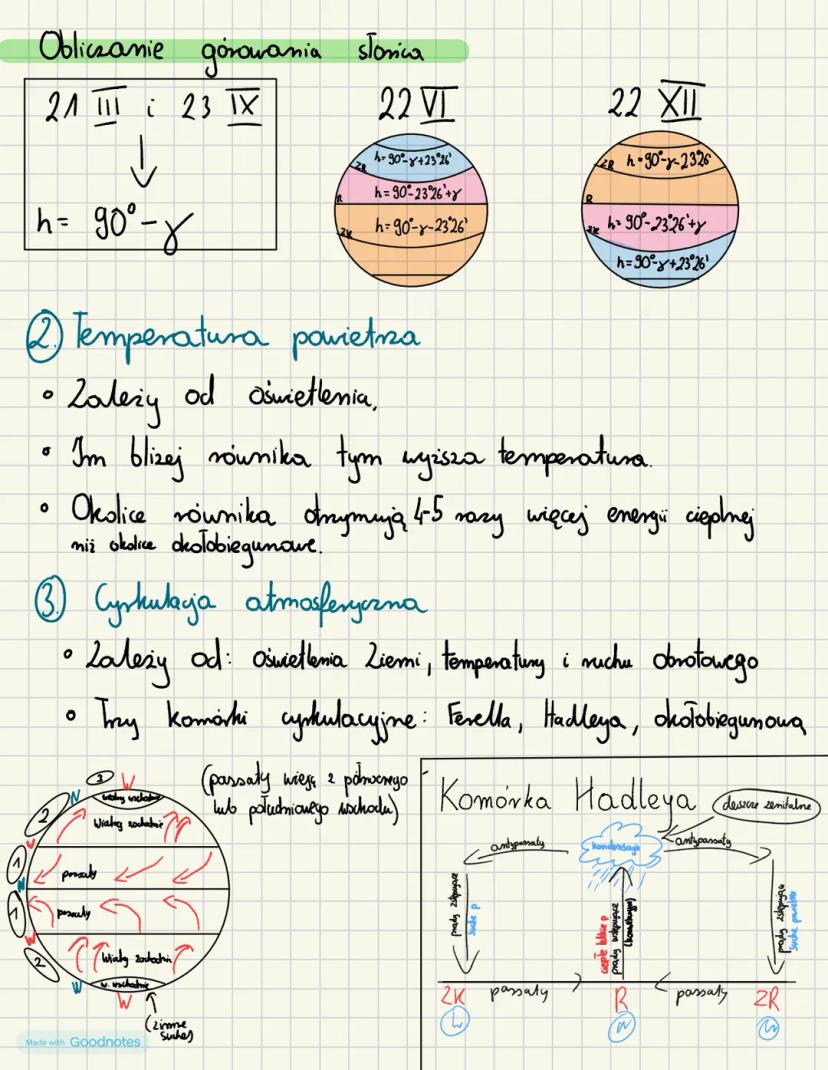 Obliczanie górowania słońca
21 III i 23 IX
h= 90°-γ
22 VI
ZR h=90°-γ+23°26'
R h=90°-23°26'+γ
ZK h=90°-γ-23°26'
22 XII
ZR h=90°-γ-23°26'
R
ZK h=90°-23°26'+γ
h=90°-γ+23°26'
2. Temperatura powietrza
• Zależy od oświetlenia.
• Im bliżej równika tym wyższa temperatura.
• Okolice równika otrzymują 4-5 razy więcej energii cieplnej
niż okolice okołobiegunowe.
3. Cyrkulacja atmosferyczna
• Zależy od: oświetlenia Ziemi, temperatury i ruchu obrotowego
• Trzy komórki cyrkulacyjne: Ferella, Hadleya, okołobiegunowa
(passaty wieją z północnego
lub południowego wschodu)
3 W
wiatry wschodnie
N
2
Wiatry zachodnie
W
1
passaty
N
1
passaty
W
2
Wiatry zachodnie
N
w. wschodnie
W
(zimne
suche)
Komórka Hadleya
deszcze zenitalne
antypassaty
kondensacja
antypassaty
prądy zstępujące
suche p
ciepłe
prądy wstępujące
prądy zstępujące
suche powietrze
ZK passaty R passaty ZR
W N W
Made with Goodnotes